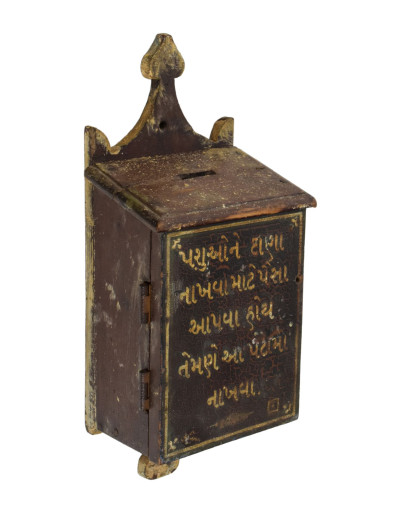 પશુઓને દાણા
નાખવા માટે પૈસા
આપવા હોય
તેમણે આ પેટીમાં
નાખવા